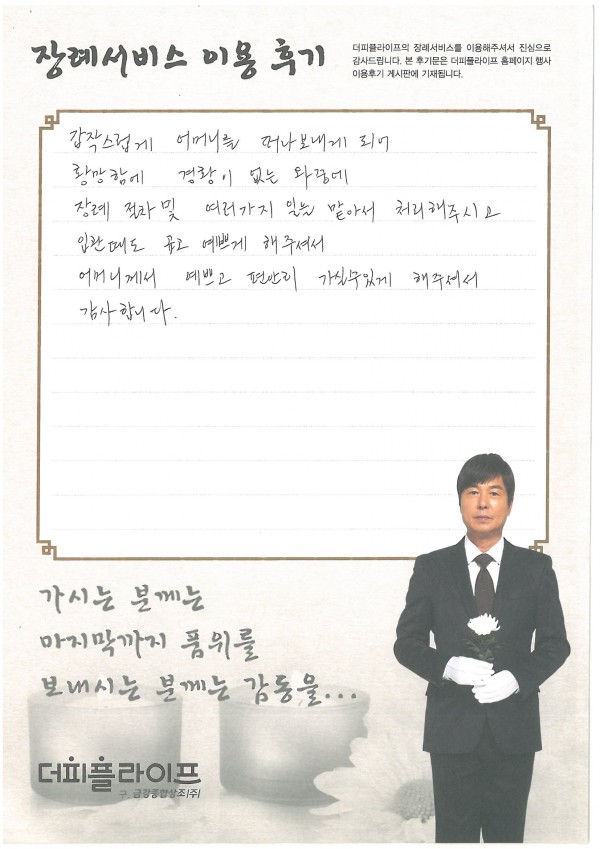 장례서비스 이용 후기
더피플라이프의 장례서비스를 이용해주셔서 진심으로
감사드립니다. 본 후기문은 더피플라이프 홈페이지 행사
이용후기 게시판에 기재됩니다.
갑작스럽게 어머니를 떠나보내게 되어
황망함에 경황이 없는 와중에
장례 절차 및 여러가지 일을 맡아서 처리해주시고
입관때도 곱고 예쁘게 해주셔서
어머니께서 예쁘고 편안히 가실수있게 해주셔서
감사합니다.
가시는 분께는
마지막까지 품위를
보내시는 분께는 감동을...
더피플라이프
구. 금강종합상조(주)